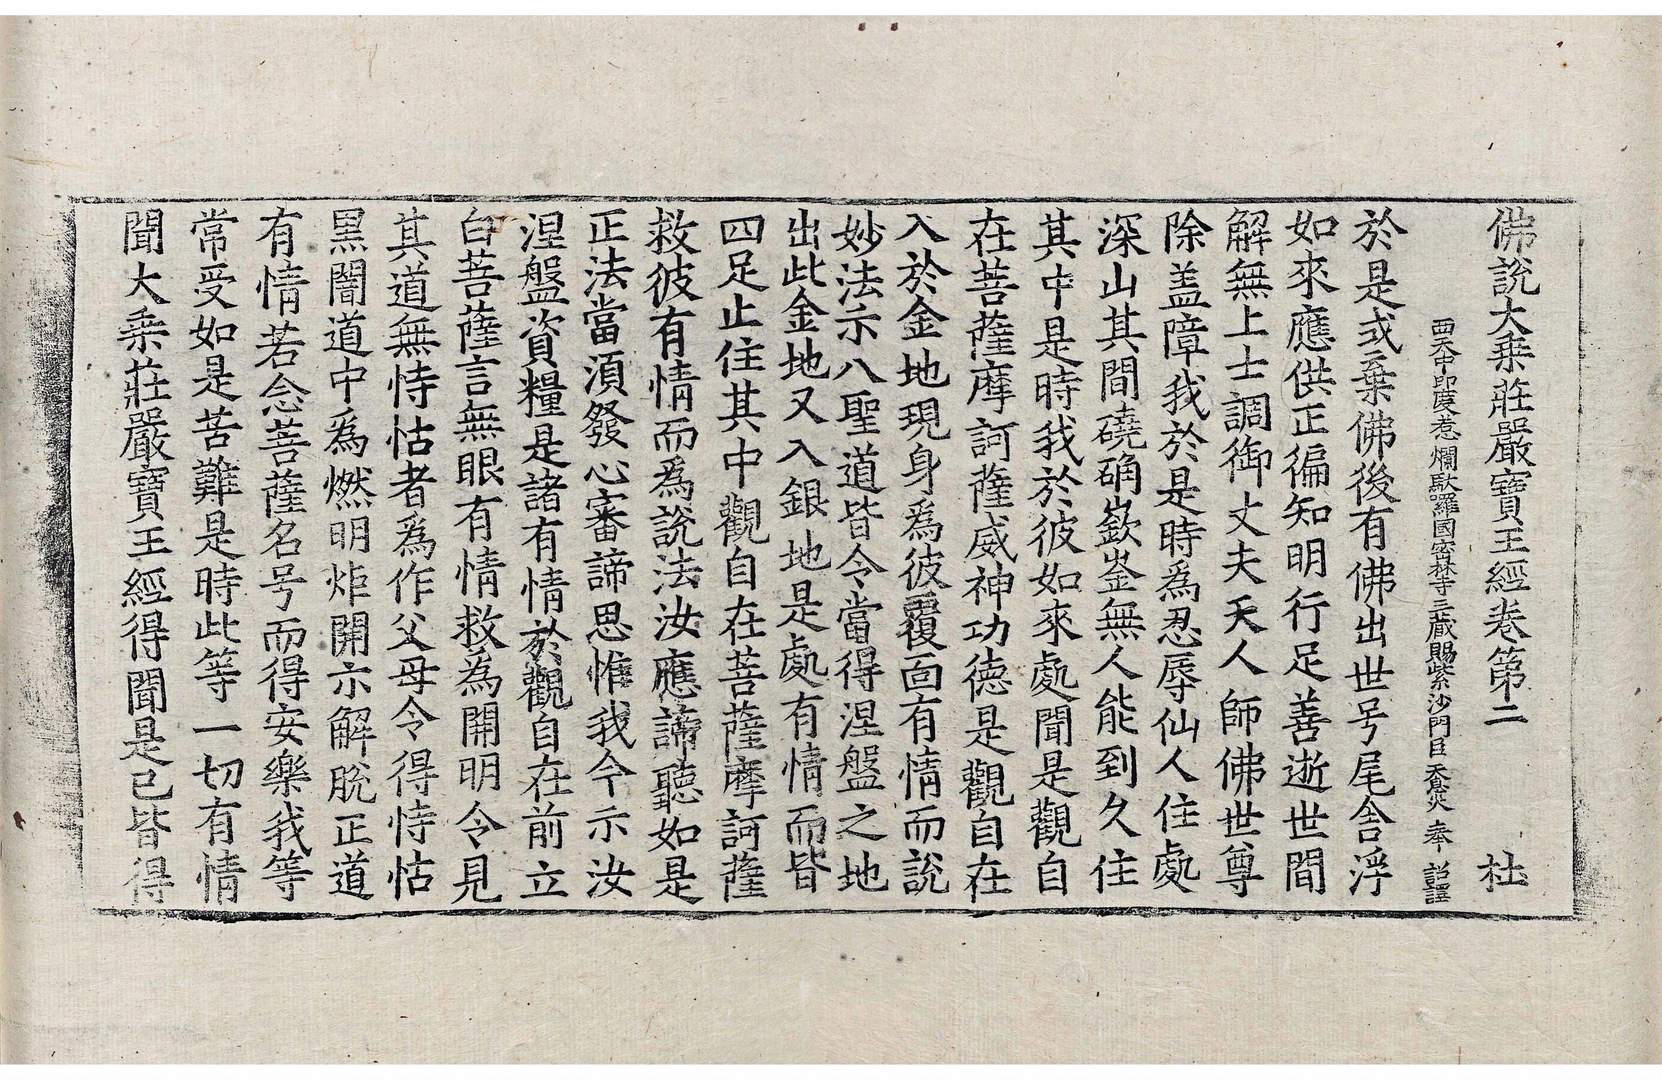 佛說大乗莊嚴寶王經卷第二 杜
西天中印度惹爛馱羅國密林寺三藏賜紫沙門臣天息災奉 詔譯
於是或棄佛後有佛出世号尾舍浮
如來應供正徧知明行足善逝世間
解無上士調御丈夫天人師佛世尊
除盖障我於是時爲忍辱仙人住處
深山其間磽确嶔崟無人能到久住
其中是時我於彼如來處聞是觀自
在菩薩摩訶薩威神功德是觀自在
入於金地現身爲彼覆面有情而說
妙法示八聖道皆令當得涅盤之地
出此金地又入銀地是處有情而皆
四足止住其中觀自在菩薩摩訶薩
救彼有情而爲說法汝應諦聽如是
正法當湏發心審諦思惟我今示汝
涅盤資糧是諸有情於觀自在前立
白菩薩言無眼有情救爲開明令見
其道無恃怙者爲作父母令得恃怙
黒闇道中爲燃明炬開示解脫正道
有情若念菩薩名号而得安樂我等
常受如是苦難是時此等一切有情
聞大乗莊嚴寶王經得聞是已皆得